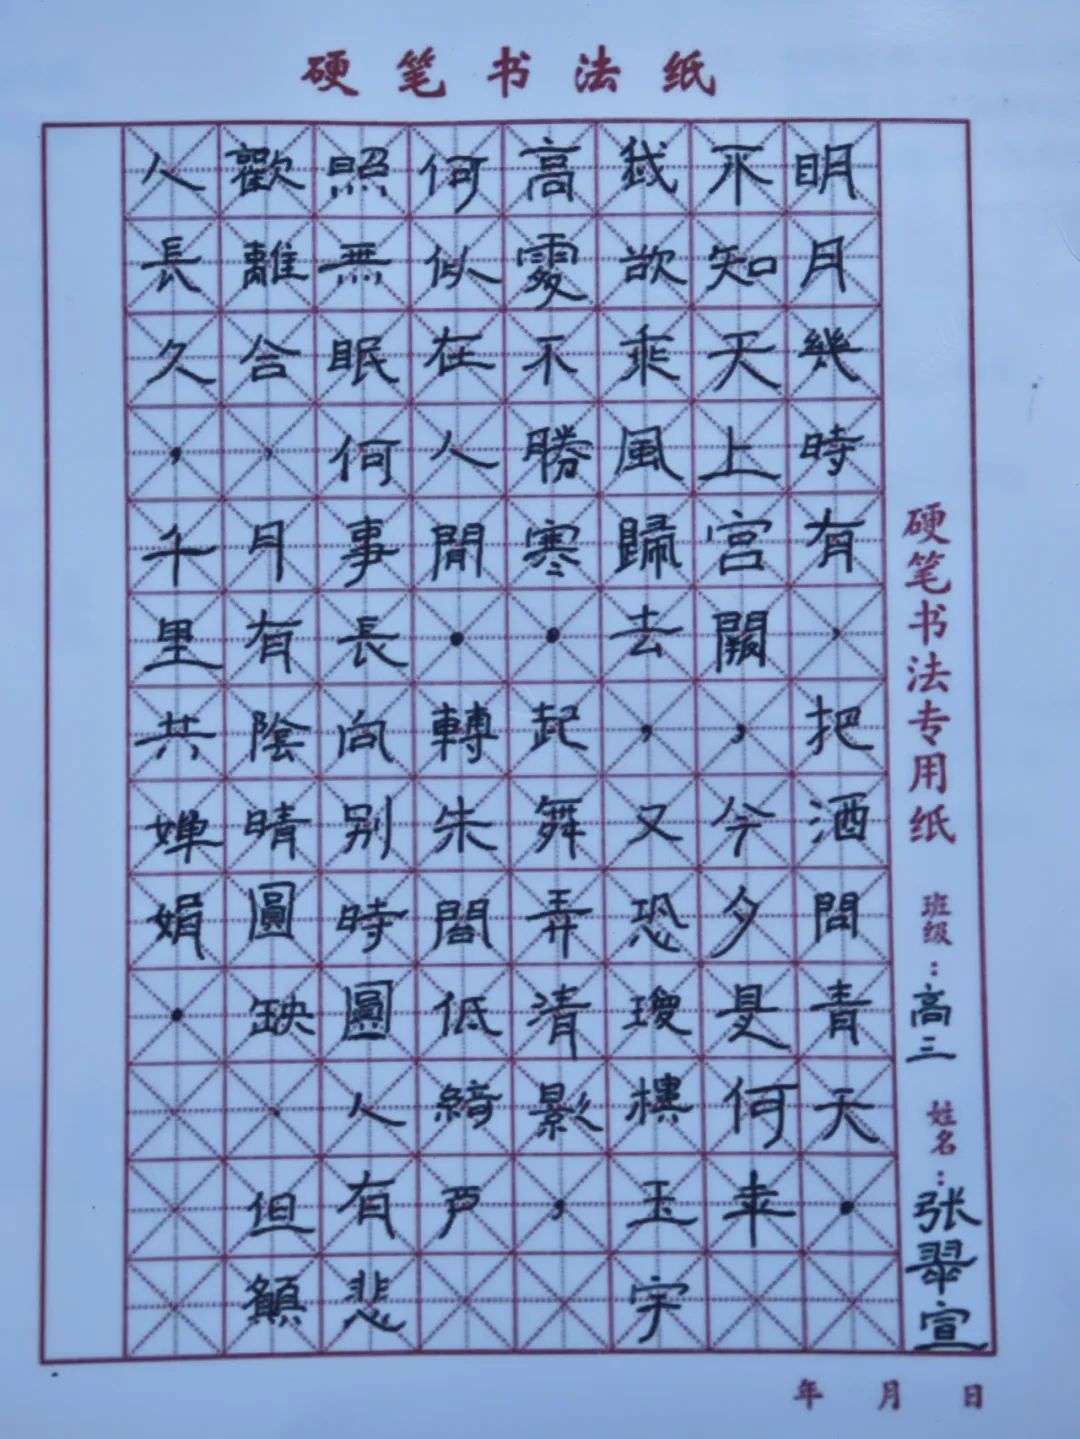 硬笔书法纸
硬笔书法专用纸 班级：高三 姓名：张翠宣
明月幾時有，把酒問青天。
不知天上宫闕，今夕是何年
我欲乘風歸去，又恐瓊樓玉宇
高處不勝寒。起舞弄清影，
何似在人間。轉朱閣低綺户
照無眠何事長向别時圓人有悲
歡離合，月有陰晴圓缺，但願
人長久，千里共嬋娟。
年 月 日